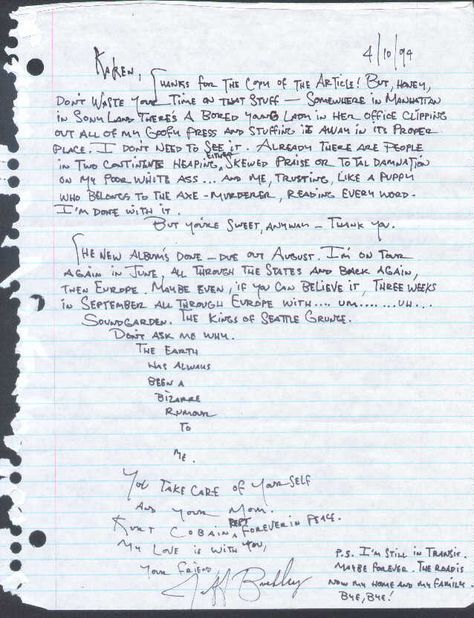 4/10/94
Karen,
Thanks for the copy of the article! But, honey,
don't waste your time on that stuff — somewhere in Manhattan
in Sony Land there's a bored young lady in her office clipping
out all of my goofy press and stuffing it away in its proper
place. I don't need to see it. Already there are people
in two continents either heaping skewed praise or total damnation
on my poor white ass... and me, trusting, like a puppy
who belongs to the axe-murderer, reading every word.
I'm done with it.
But you're sweet, anyway — thank you.
The new album's done — due out August. I'm on tour
again in June, all through the States and back again,
then Europe. Maybe even, if you can believe it, three weeks
in September all through Europe with.... um..... ..uh...
Soundgarden. The Kings of Seattle Grunge.
Don't ask me why.
The Earth
has always
been a
bizarre
rumour
to
me.
You take care of yourself
and your mom.
Kurt Cobain, rest forever in peace.
My love is with you,
Your friend
Jeff Buckley
P.S. I'm still in transit.
Maybe forever. The road is
now my home and my family.
Bye, bye!